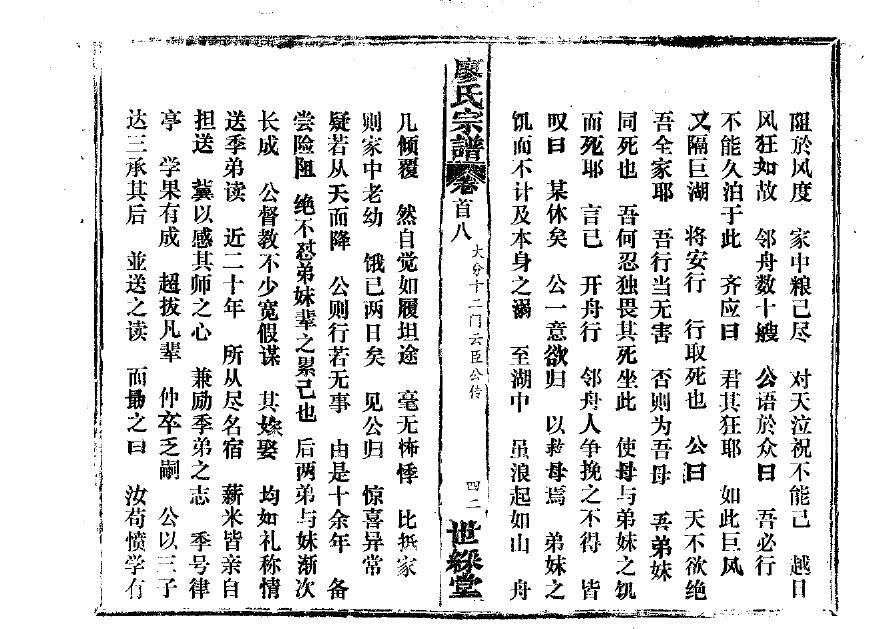 阻於风度 家中粮已尽 对天泣祝不能已 越日
风狂如故 邻舟数十艘 公语於众曰 吾必行
不能久泊于此 齐应曰 君其狂耶 如此巨风
又隔巨湖 将安行 行取死也 公曰 天不欲绝
吾全家耶 吾行当无害 否则为吾母 吾弟妹
同死也 吾何忍独畏其死坐此 使母与弟妹之饥
而死耶 言已 开舟行 邻舟人争挽之不得 皆
叹曰 某休矣 公一意欲归 以救母焉 弟妹之
饥而不计及本身之祸 至湖中 虽浪起如山 舟
廖氏宗譜 卷首八 大分十二门云臣公传 四二 世綵堂
几倾覆 然自觉如履坦途 毫无怖悸 比抵家
则家中老幼 饿已两日矣 见公归 惊喜异常
疑若从天而降 公则行若无事 由是十余年 备
尝险阻 绝不怼弟妹辈之累己也 后两弟与妹渐次
长成 公督教不少宽假谋 其嫁娶 均如礼称情
送季弟读 近二十年 所从尽名宿 薪米皆亲自
担送 冀以感其师之心 兼励季弟之志 季号律
亭 学果有成 超拔凡辈 仲卒乏嗣 公以三子
达三承其后 並送之读 而勖之曰 汝苟愤学有